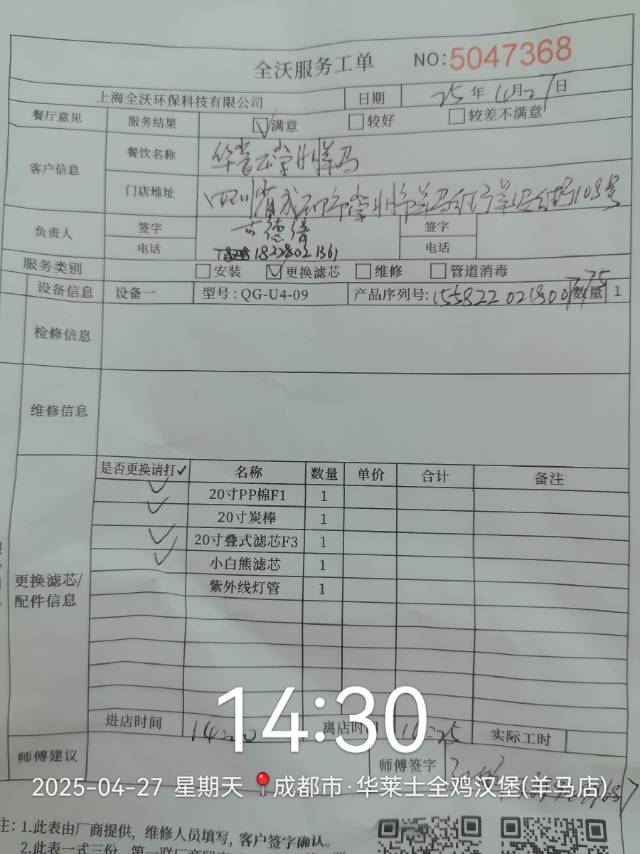 全沃服务工单 NO:5047368
上海全沃环保科技有限公司 日期 25年4月27日
餐厅意见 服务结果 ☑满意 □较好 □较差不满意
客户信息 餐饮名称
门店地址 四川省成都市崇州市羊马 103号
负责人 签字 签字
电话 18228021361 电话
服务类别 □安装 ☑更换滤芯 □维修 □管道消毒
设备信息 设备一 型号:QG-U4-09 产品序列号: 数量 1
检修信息
维修信息
是否更换请打✓ 名称 数量 单价 合计 备注
✓ 20寸PP棉F1 1
✓ 20寸炭棒 1
✓ 20寸叠式滤芯F3 1
✓ 小白熊滤芯 1
紫外线灯管 1
更换滤芯/
配件信息
进店时间 离店时 实际工时
14:30
师傅建议 师傅签字
2025-04-27 星期天 成都市·华莱士全鸡汉堡(羊马店)
注:1.此表由厂商提供,维修人员填写,客户签字确认。
2.此表一式三份,第一联厂商留